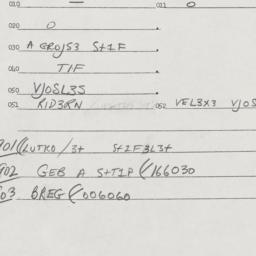 010 — 011 O
020 O
030 A GROJ53 S+1F
040 TIF
050 VJOSL3S
051 RID3RN 052 VEL3X3 VJOS
901 (LUTKO/3+ S+2F3L3+
902 GEB A S+T1P (166030
903 BREG (006060